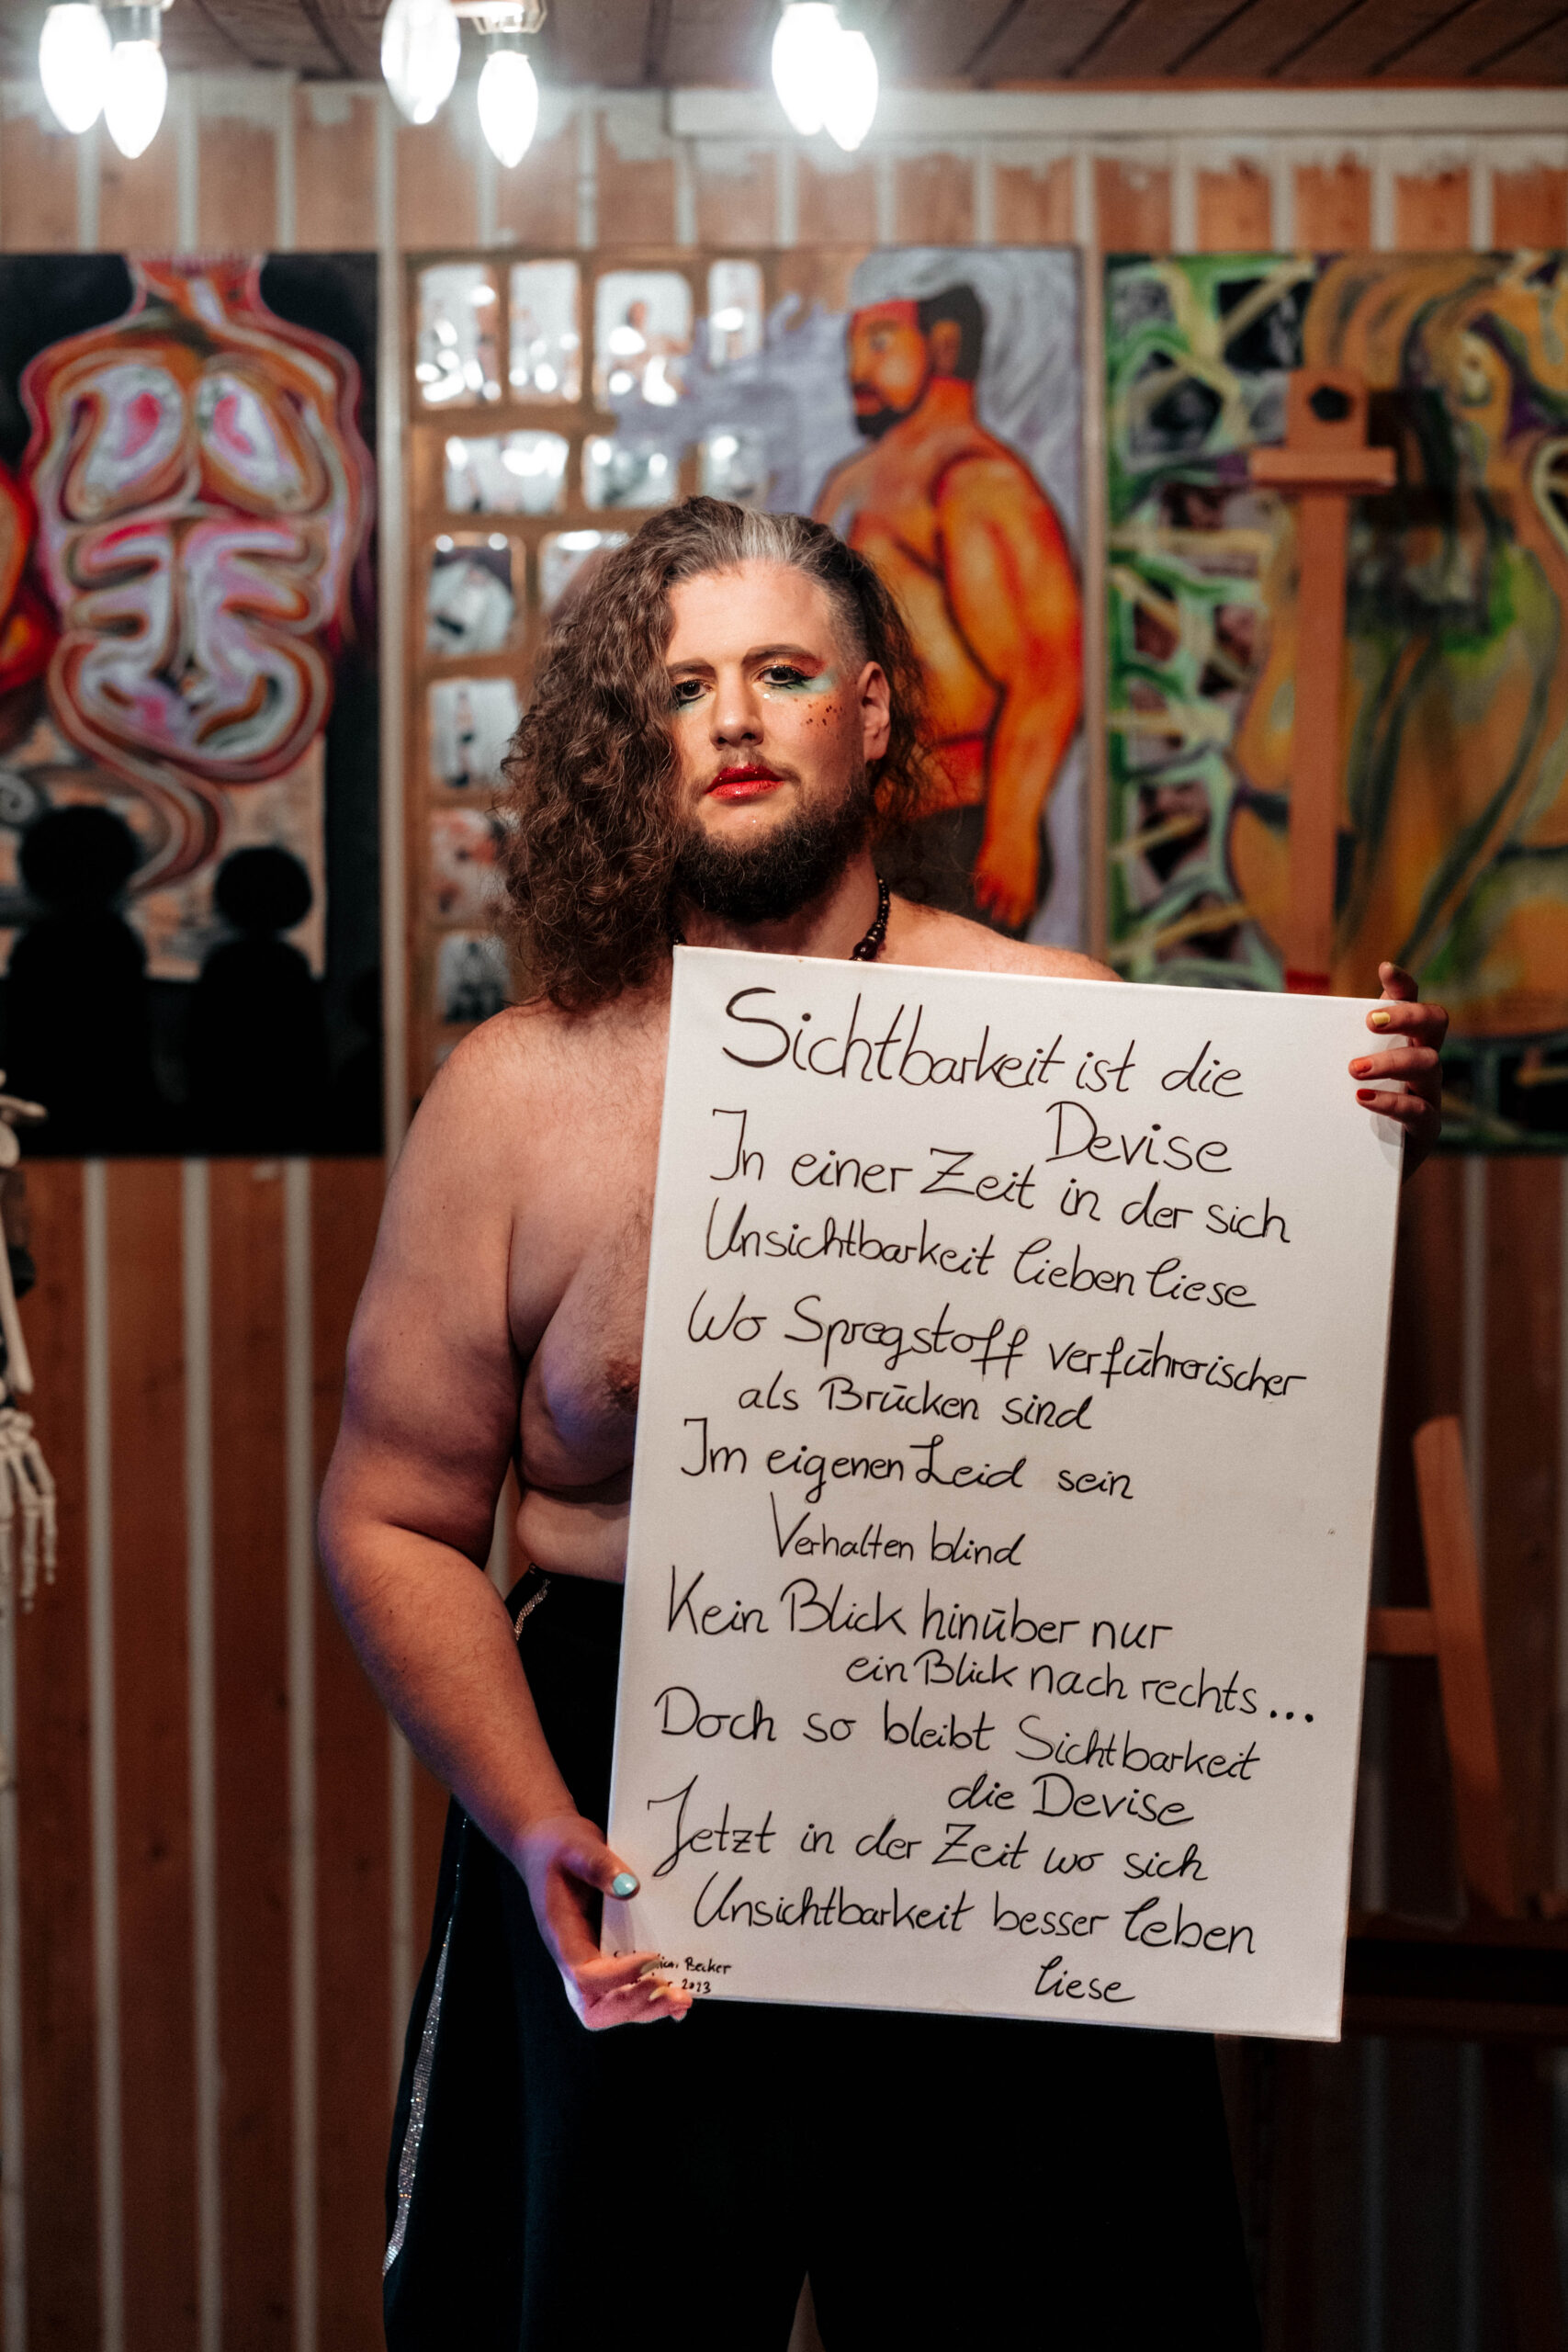 Sichtbarkeit ist die
Devise
In einer Zeit in der sich
Unsichtbarkeit lieben liese
Wo Spregstoff verführerischer
als Brücken sind
Im eigenen Leid sein
Verhalten blind
Kein Blick hinüber nur
ein Blick nach rechts...
Doch so bleibt Sichtbarkeit
die Devise
Jetzt in der Zeit wo sich
Unsichtbarkeit besser leben
liese
Becker
2023